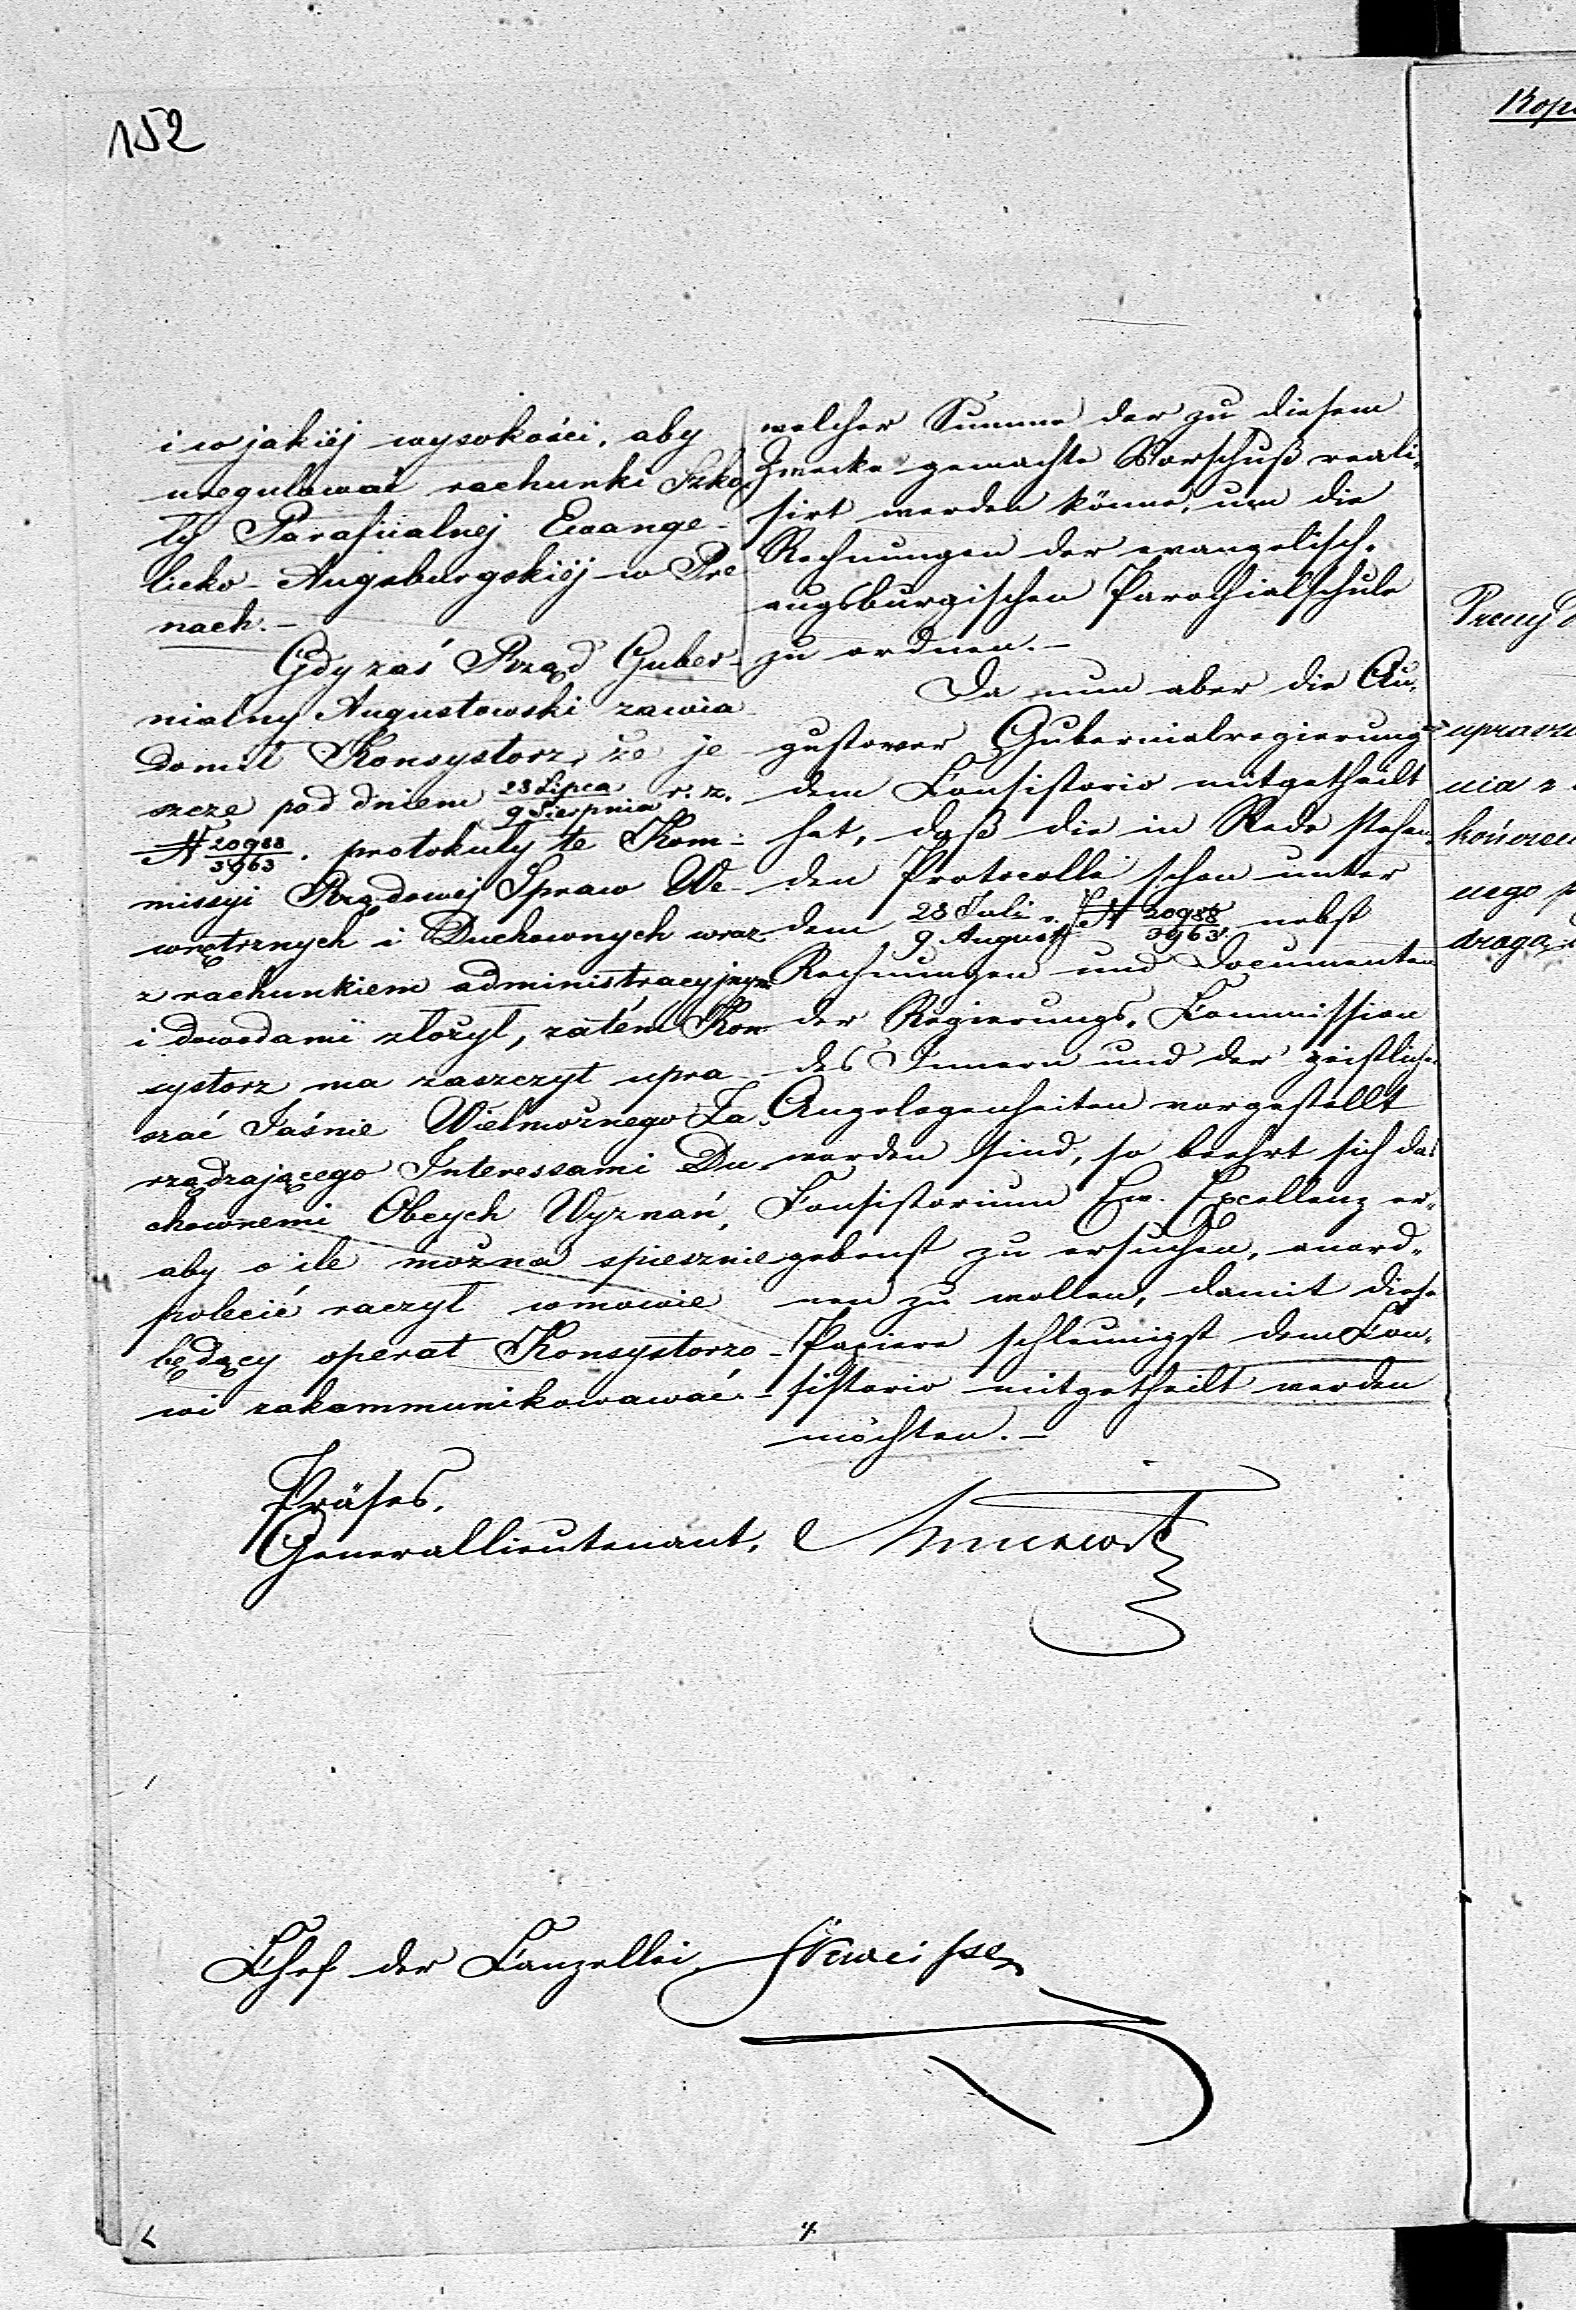 152
i w jakiéj wysokości, aby
uregulować rachunki Szko-
ły Parafiialnej Ewange-
licko-Augsburgskiéj w Pre
nach.-
Gdy zaś Rząd Guber-
nialny Augustowski zawia-
domił Konsystorz, że je-
szcze pod dniem 28 Lipca / 9 Sierpnia r. z.
N 20988/3963. protokuły te Kom-
missyi Rządowej Spraw We-
wnętrznych i Duchownych wraz
z rachunkiem administracyjnym
i dowodami złożył, zatém Kon-
systorz ma zaszczyt upra-
szać Jaśnie Wielmożnego Za-
rządzającego Interessami Du-
chownemi Obcych Wyznań,
aby o ile można spiesznie
polecić raczył wmowie
będący operat Konsystorzo-
wi zakommunikowawać.-
welcher Summe der zu diesem
Zwecke gemachte Vorschuß reali-
sirt werden könne, um die
Rechnungen der evangelisch-
augsburgischen Parochialschule
zu ordnen.-
Da nun aber die Au-
gustower Gubernialregierung
dem Consistorio mitgetheilt
hat, daß die in Rede stehen-
den Protocolle schon unter
dem 28 Juli / 9 August v. J. N 20988/3963 nebst
Rechnungen und Documenten
der Regierungs-Commission
des Innern und der geistlichen
Angelegenheiten vorgestellt
worden sind, so beehrt sich das
Consistorium Ew. Excellenz er-
gebenst zu ersuchen, anord-
nen zu wollen, damit diese
Papiere schleunigst dem Con-
sistorio mitgetheilt werden
möchten.-
Präses,
Generallieutenant,
Chef der Canzellei